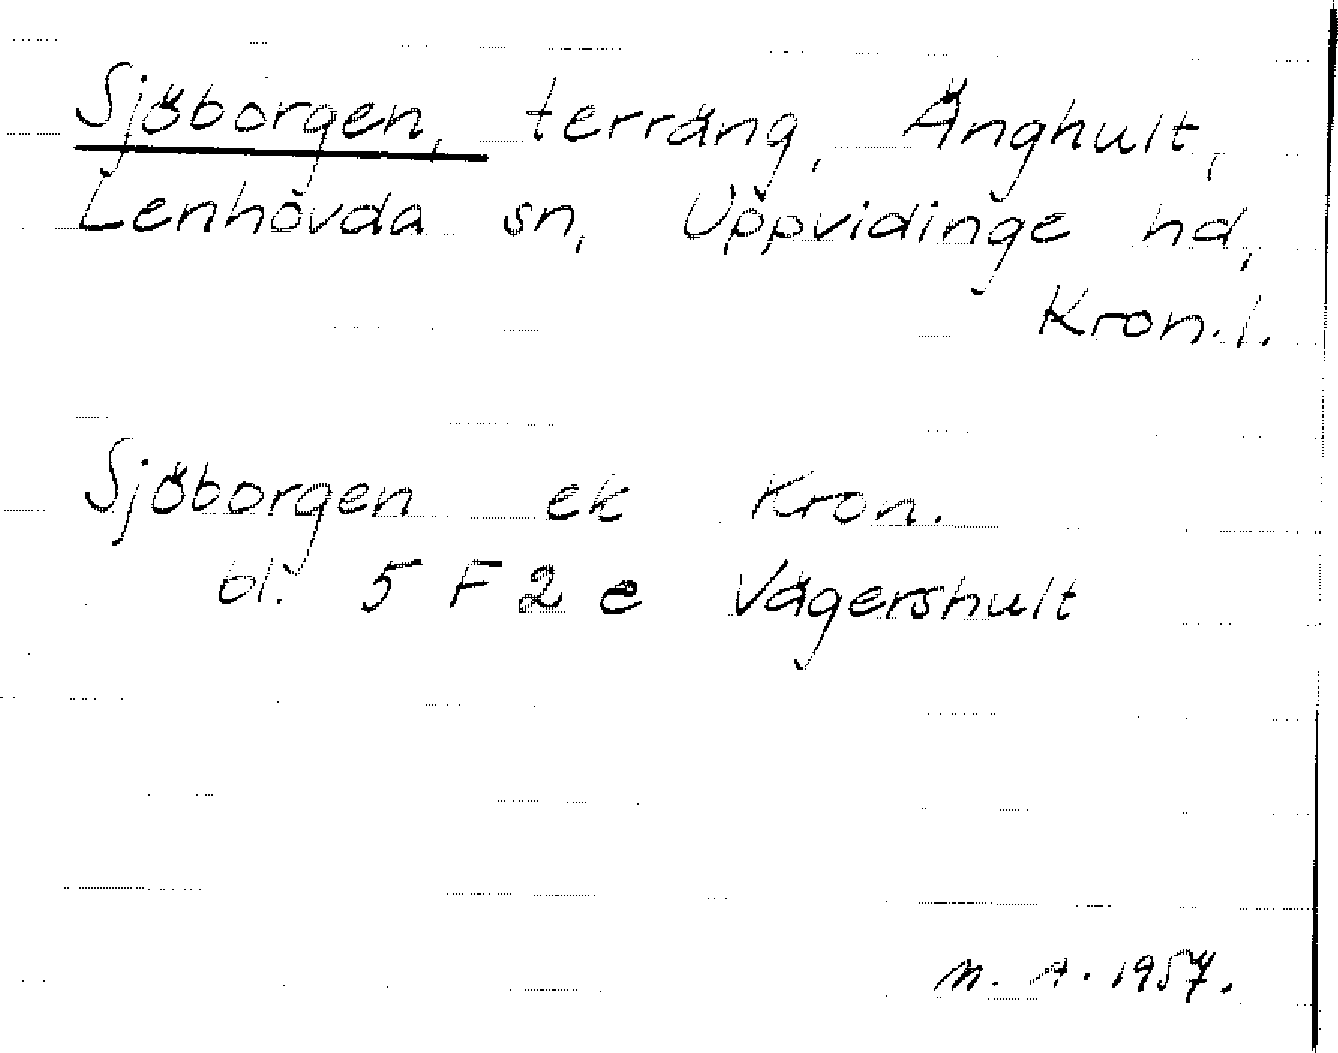 Sjöborgen, terräng, Änghult,
Lenhövda sn, Uppvidinge hd,
Kron. l.
Sjöborgen ek Kron.
bl. 5 F 2 e Vägershult
M. A. 1957.